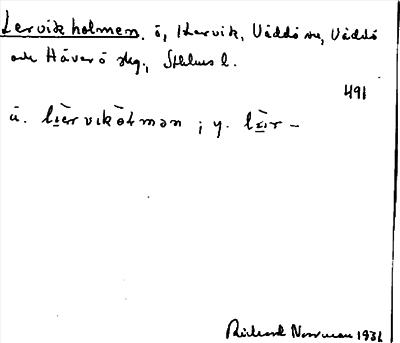 Lervikholmen, ö, Hervik, Väddö sn, Väddö
och Häverö skg., Sthlms l.
491
ä. lièrvikòlmən ; y. lèr –
Rickard Norrman 1936